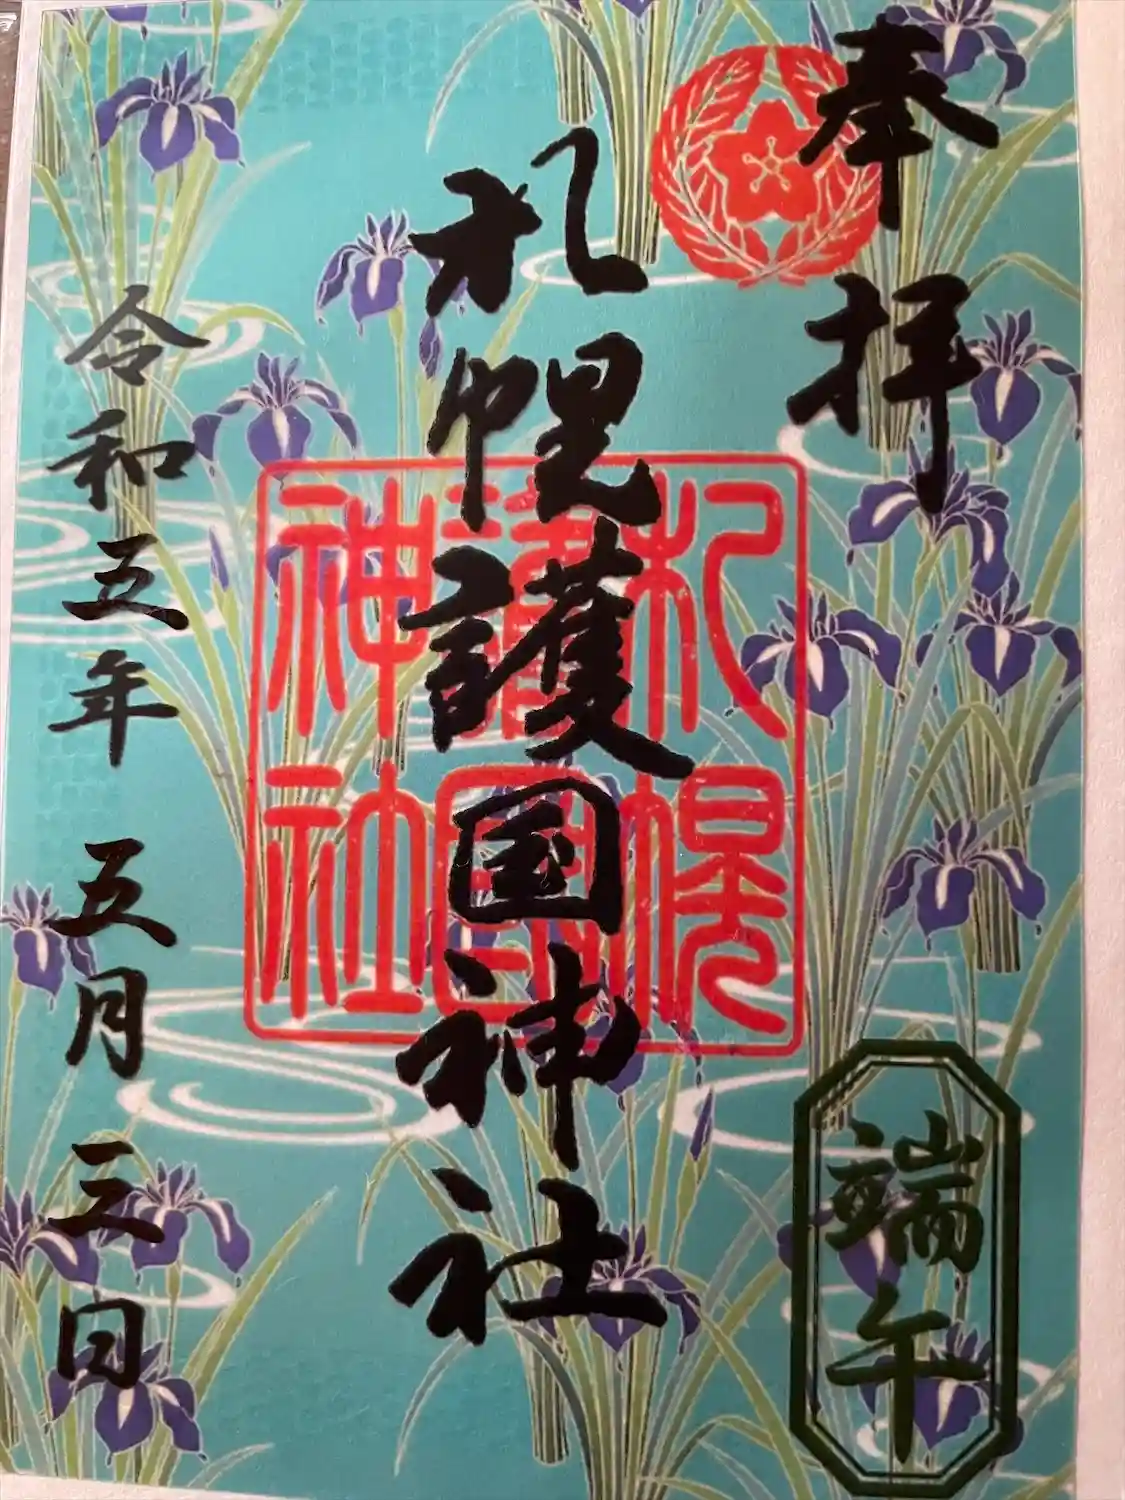 奉拝
札幌護国神社
札幌
護国
神社
令和五年 五月三日
端午